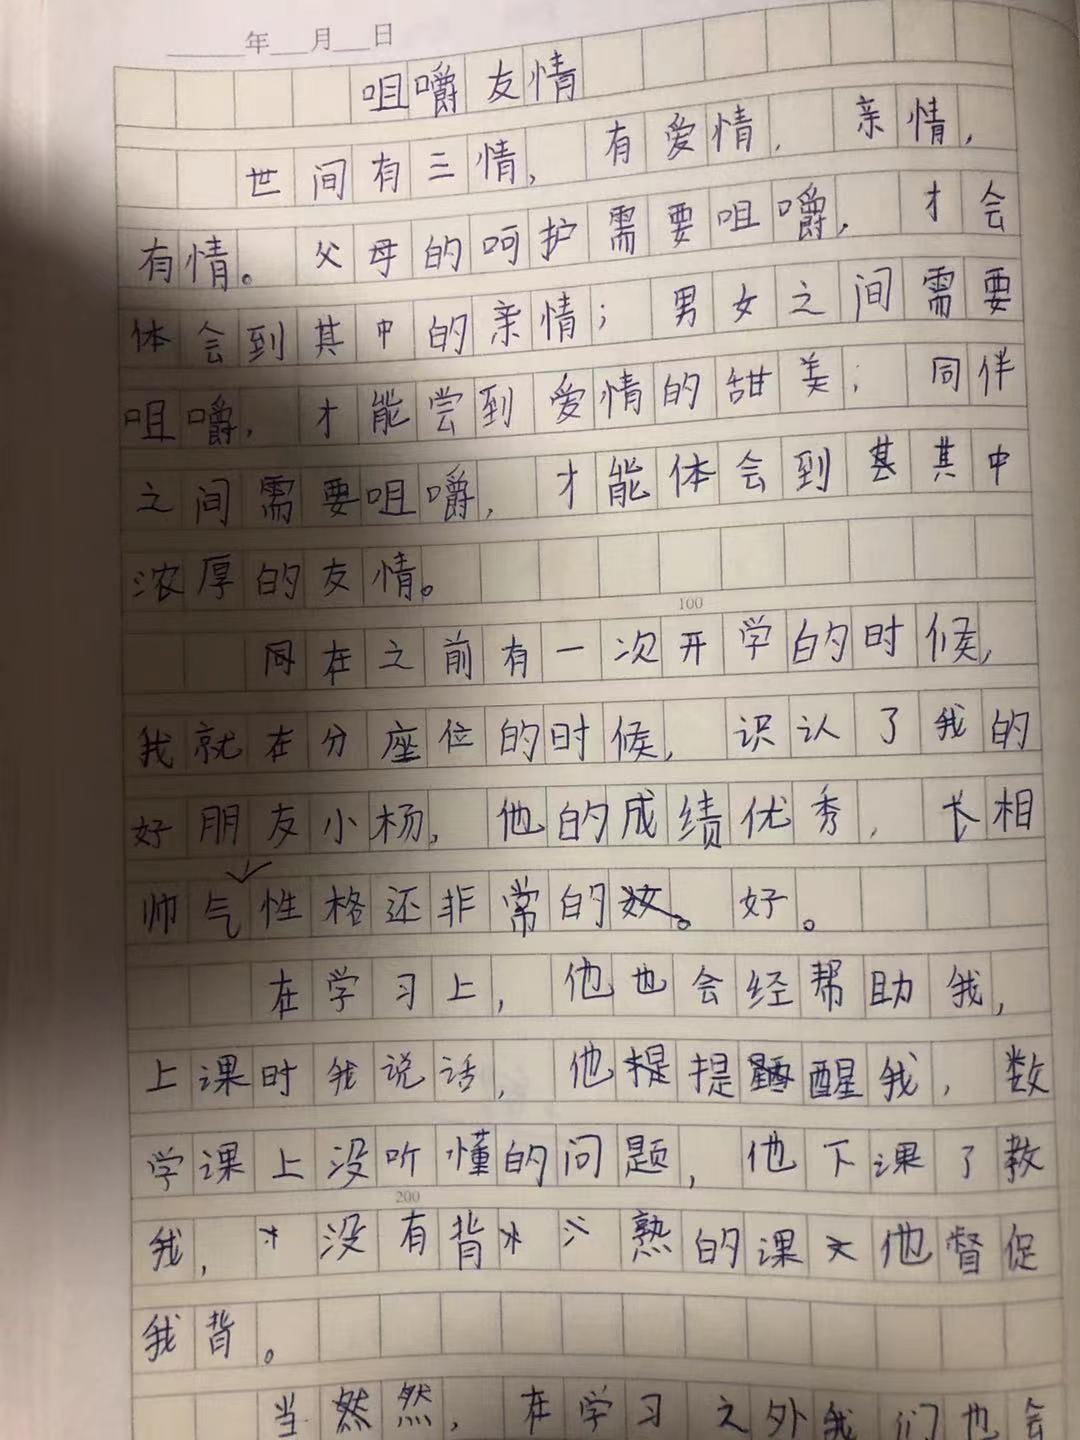 年 月 日
咀嚼友情
世间有三情，有爱情，亲情，
有情。父母的呵护需要咀嚼，才会
体会到其中的亲情；男女之间需要
咀嚼，才能尝到爱情的甜美；同伴
之间需要咀嚼，才能体会到其中
浓厚的友情。
100
在之前有一次开学的时候，
我就在分座位的时候，识认了我的
好朋友小杨，他的成绩优秀，长相
帅气性格还非常的好。
在学习上，他也会经帮助我，
上课时我说话，他提醒我，数
学课上没听懂的问题，他下课了教
200
我，没有背熟的课他督促
我背。
当然，在学习之外我们也会